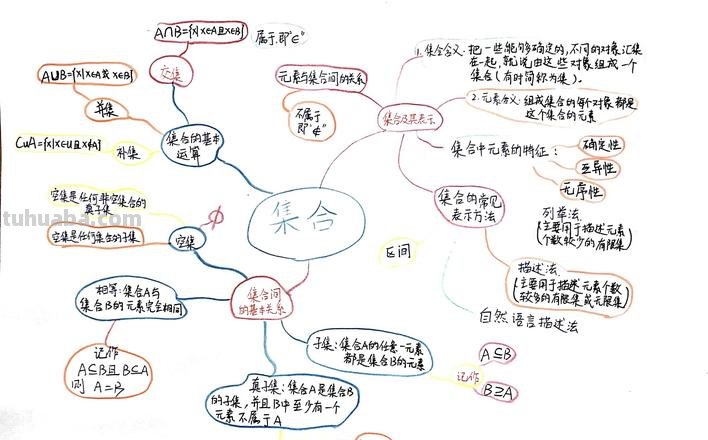 集合
A∩B={x|x∈A且x∈B}
交集
A∪B={x|x∈A或x∈B}
并集
CuA={x|x∈U且x∉A}
补集
集合的基本
运算
属于,即"∈"
元素与集合间的关系
不属于
即"∉"
集合及其表示
1.集合含义:把一些能够确定的,不同的对象汇集
在一起,就说由这些对象组成一个
集合(有时简称为集)。
2.元素含义:组成集合的每个对象都是
这个集合的元素
集合中元素的特征:
确定性
互异性
无序性
集合的常见
表示方法
列举法
(主要用于描述元素
个数较少的有限集)
描述法
(主要用于描述元素个数
较多的有限集或无限集)
自然语言描述法
区间
空集是任何非空集合的
真子集
tuhuaba.com
空集是任何集合的子集
空集
∅
集合间
的基本关系
相等:集合A与
集合B的元素完全相同
记作
A⊆B且B⊆A
则 A=B
子集:集合A的任意一元素
都是集合B的元素
记作
A⊆B
B⊇A
真子集:集合A是集合B
的子集,并且B中至少有一个
元素不属于A